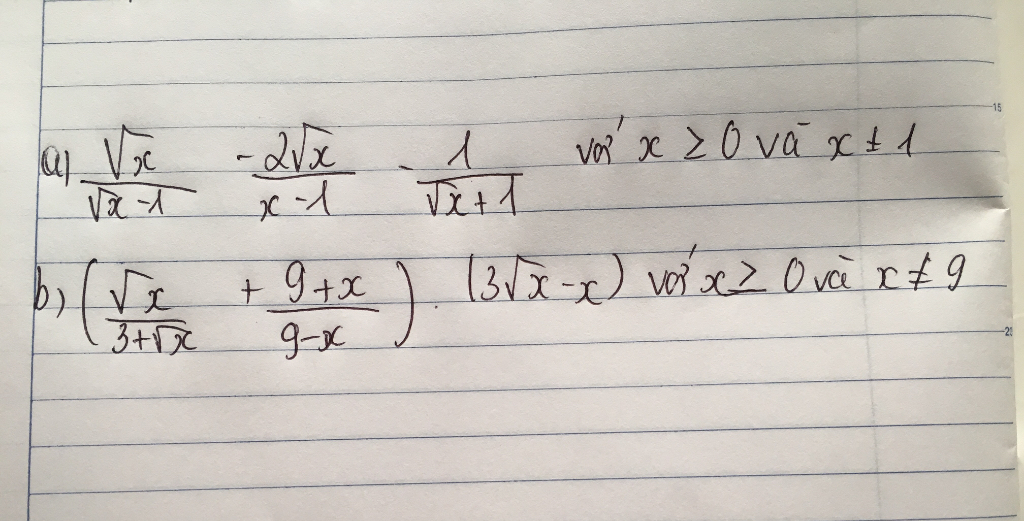 a) √x/(√x-1) -2√x/(x-1) - 1/(√x+1) với x ≥ 0 và x ≠ 1
b) (√x/(3+√x) + (9+x)/(9-x)) . (3√x-x) với x ≥ 0 và x ≠ 9
15